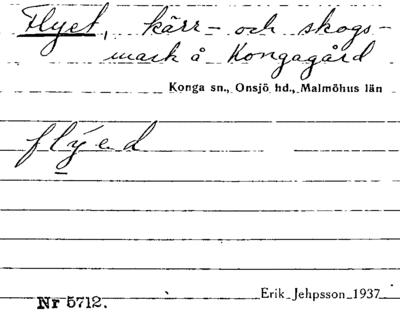 Flyet, kärr- och skogs-
mark å Kongagård
Konga sn., Onsjö hd., Malmöhus län
flýed
Erik Jehpsson 1937
Nr 5712.